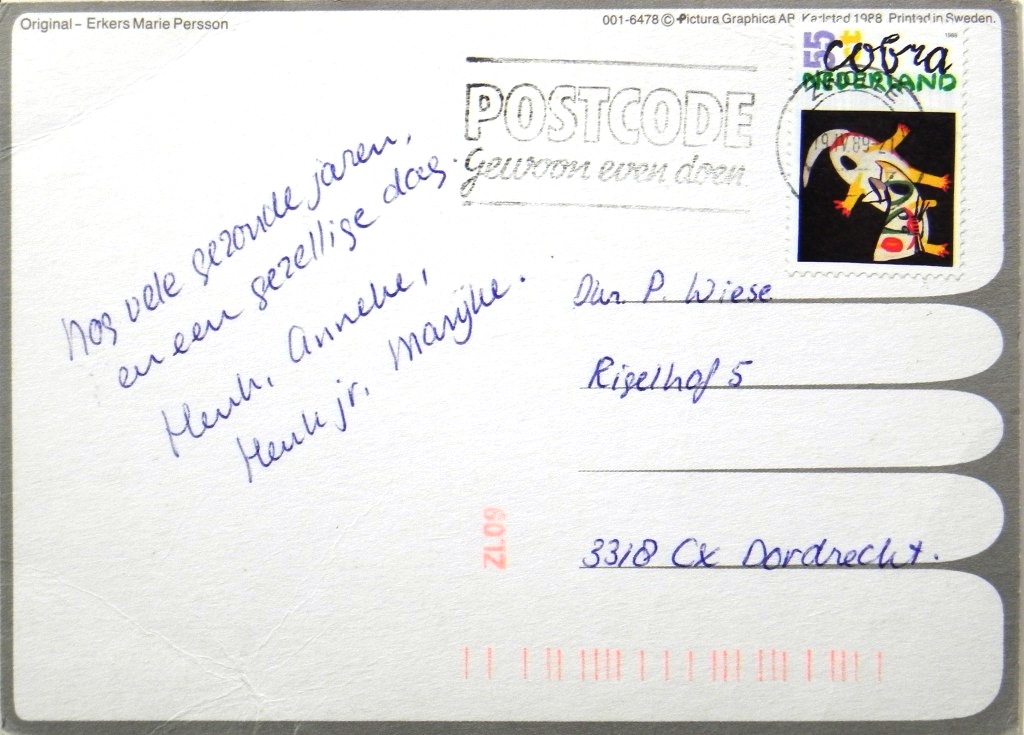 Original – Erkers Marie Persson
001-6478 © Pictura Graphica AB Karlstad 1988 Printed in Sweden.
1988
55 ct
cobra
NEDERLAND
POSTCODE
Gewoon even doen
19.IV.89
Nog vele gezonde jaren,
en een gezellige dag.
Henk, Anneke,
Henk jr, Marijke.
P. Wiese
Rigelhof 5
3318 CX Dordrecht.
ZL09